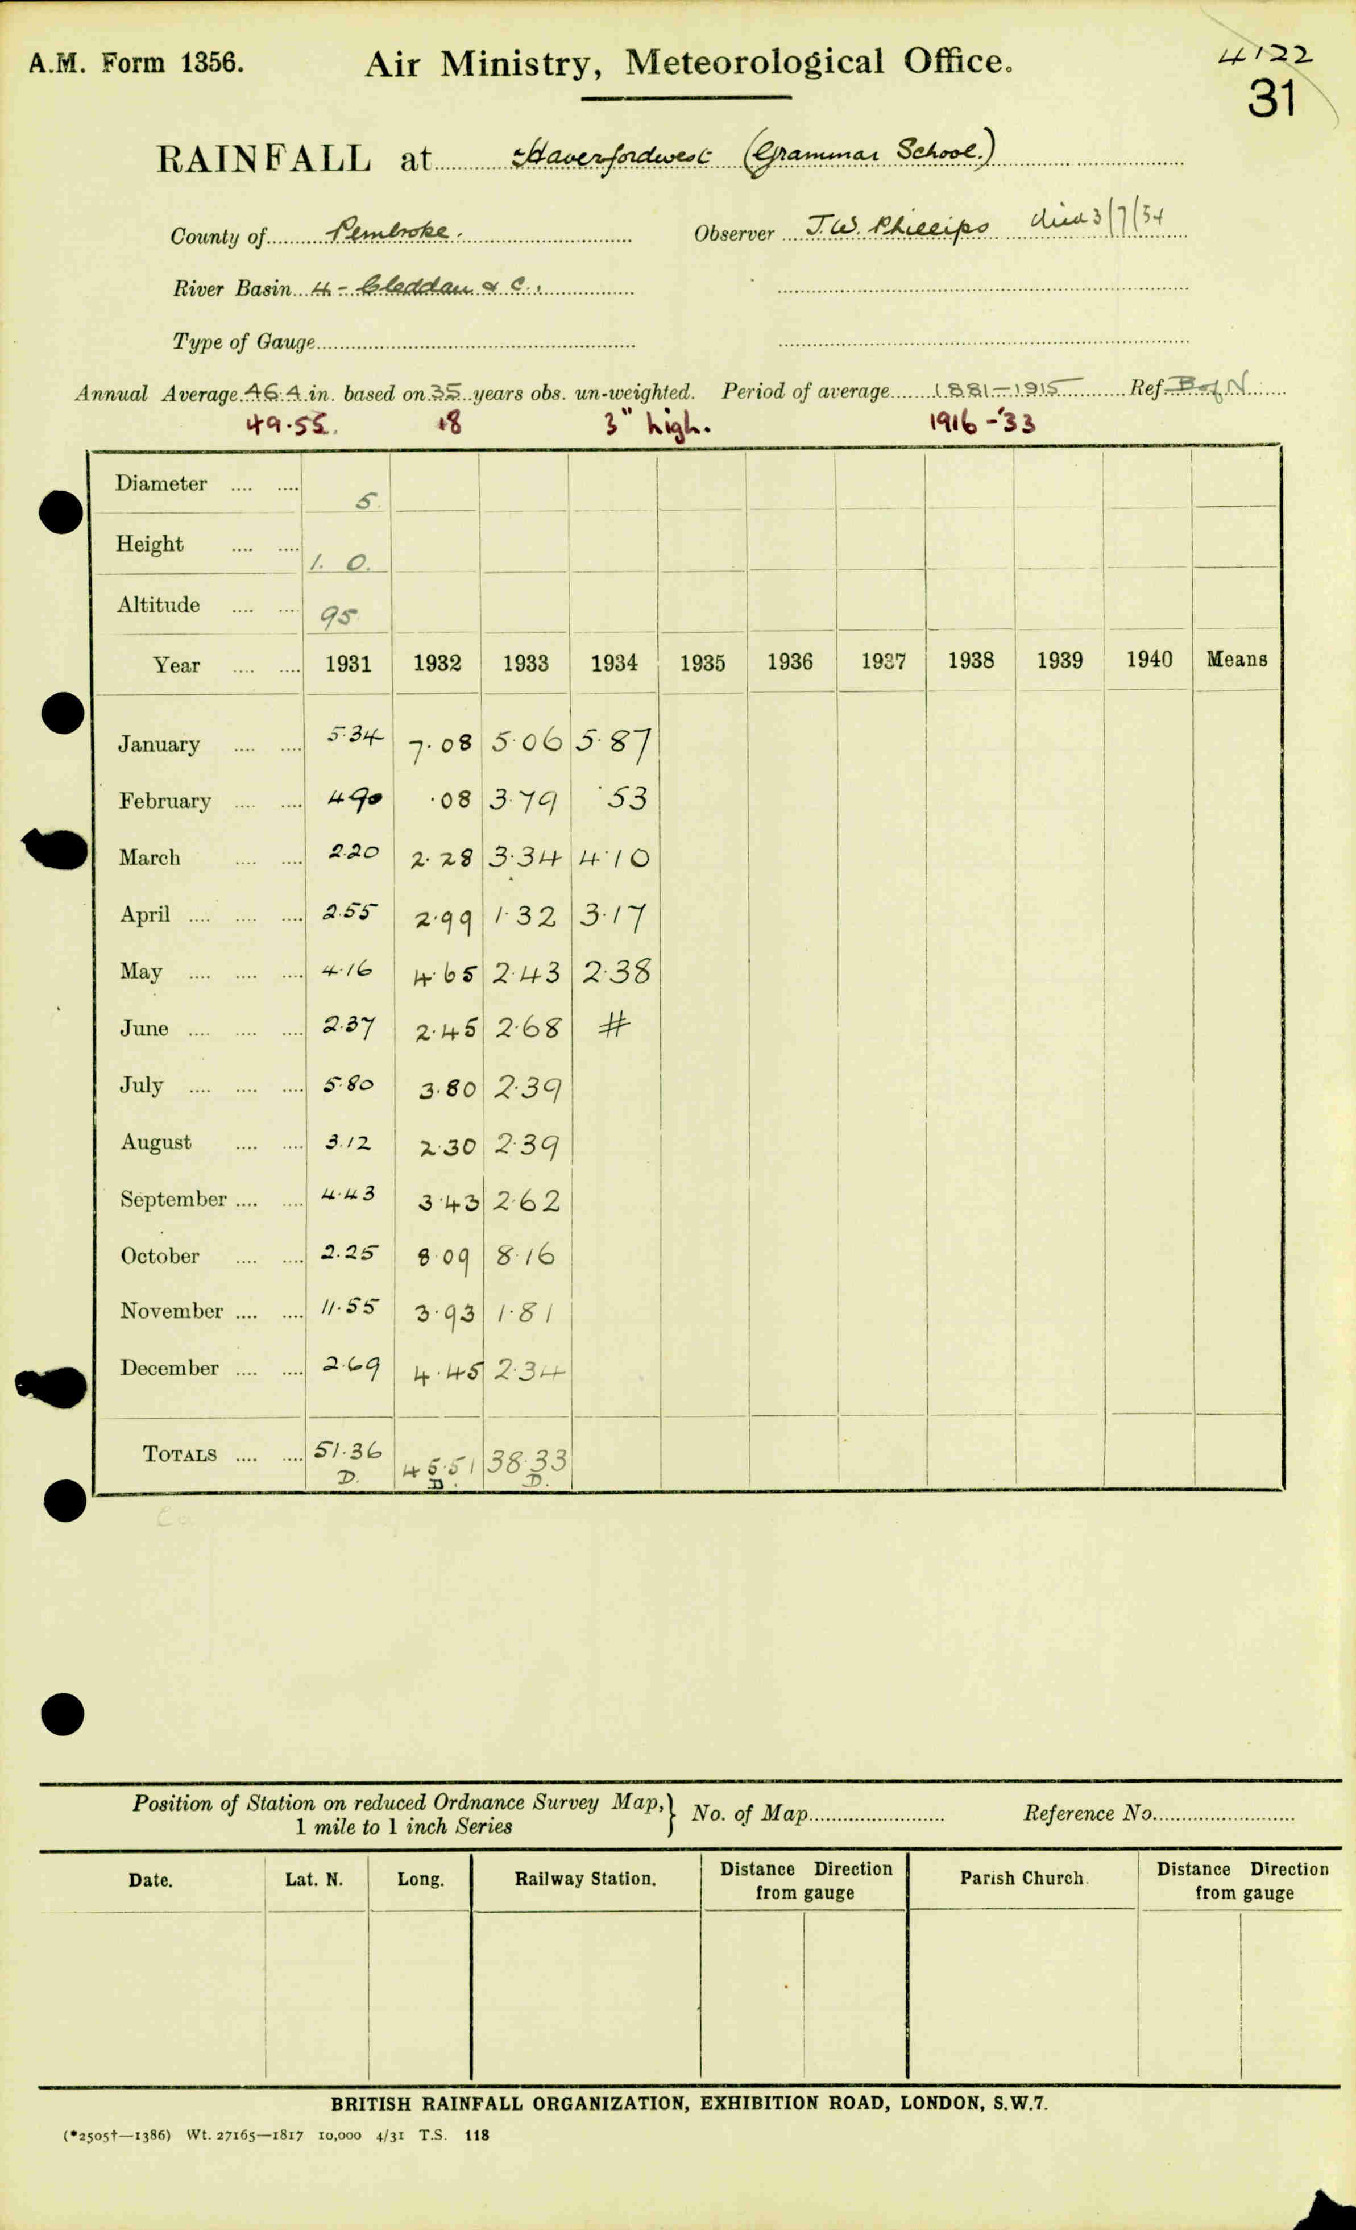 A.M. Form 1356. Air Ministry, Meteorological Office. 4122
31
RAINFALL at Haverfordwest (Grammar School.)
County of Pembroke. Observer J.W. Phillips died 3/7/34
River Basin 4 - Cleddau & C.
Type of Gauge
Annual Average 46.4 in. based on 35 years obs. un-weighted. Period of average 1881-1915 Ref. B of N
49.55. 18 3" high. 1916-'33
Diameter 5
Height 1. 0.
Altitude 95
Year 1931 1932 1933 1934 1935 1936 1937 1938 1939 1940 Means
January 5.34 7.08 5.06 5.87
February 4.90 .08 3.79 .53
March 2.20 2.28 3.34 4.10
April 2.55 2.99 1.32 3.17
May 4.16 4.65 2.43 2.38
June 2.37 2.45 2.68 #
July 5.80 3.80 2.39
August 3.12 2.30 2.39
September 4.43 3.43 2.62
October 2.25 8.09 8.16
November 11.55 3.93 1.81
December 2.69 4.45 2.34
TOTALS 51.36 45.51 38.33
D. D. D.
Position of Station on reduced Ordnance Survey Map, } No. of Map Reference No.
1 mile to 1 inch Series
Date. Lat. N. Long. Railway Station. Distance Direction from gauge Parish Church. Distance Direction from gauge
BRITISH RAINFALL ORGANIZATION, EXHIBITION ROAD, LONDON, S.W.7.
(*2505†—1386) Wt. 27165—1817 10,000 4/31 T.S. 118